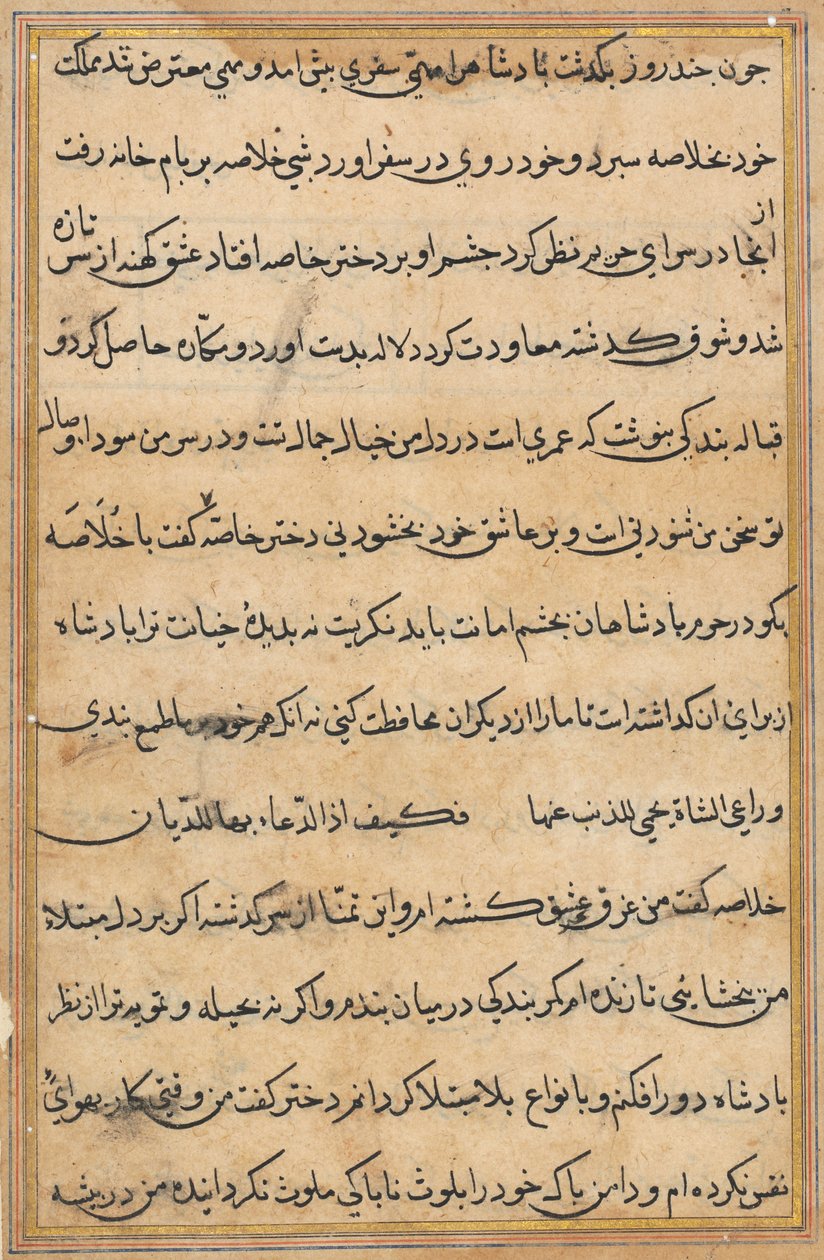 جون جند روز بكذشت بادشاه را مهمّي سفري بيش امد و مهمي معترض شد مملكت
خود بخلاصه سبرد و خود روي در سفر اورد شبي خلاصه بر بام خانه رفت
از
انجا در سراي حرم نظر كرد جشم او بر دختر خاصه افتاد عشق كهنه از سر تازه
شد و شوق كذشته معاودت كرد دلاله بدست اورد و مكّاره حاصل كرد و
قباله بندكي بنوشت كه عمري است در دل من خيال جمال تست و در سر من سوداء وصال
تو سخن من شنودني است و بر عاشق خود بخشودني دختر خاصّه كفت با خُلَاصَه
بكو در حرم بادشاهان بجشم امانت بايد نكريست نه بديدهٔ خيانت ترا بادشاه
از براي ان كذاشته است تا ما را از ديكران محافظت كني نه انك هم خود بر ما طمع بندي
وراعي الشاة يحمي للذئب عنها فكيف اذا الدّعاء بها للدّيان
خلاصه كفت من غرق عشق كشته ام و اين تمنّا از سر كذشته اكر بر دل مبتلاء
من بخشايئي تا زنده ام كمر بندكي در ميان بندم و اكر نه بحيله و تمويه ترا از نظر
بادشاه دور افكنم و بانواع بلا مبتلا كردانم دختر كفت من وقتي كار بهوائ
نفس نكرده ام و دامن باك خود را بلوث ناباكي ملوث نكردانيده من در بيشه